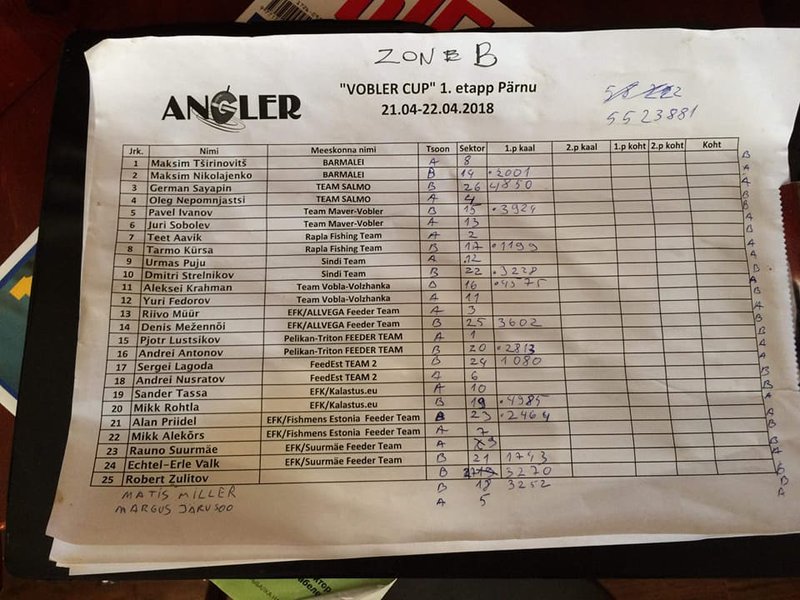 ZONE B
ANGLER
"VOBLER CUP" 1. etapp Pärnu
21.04-22.04.2018
5523881
Jrk. Nimi Meeskonna nimi Tsoon Sektor 1.p kaal 2.p kaal 1.p koht 2.p koht Koht
1 Maksim Tširinovitš BARMALEI A 8 B
2 Maksim Nikolajenko BARMALEI B 14 2001 A
3 German Sayapin TEAM SALMO B 26 4850 A
4 Oleg Nepomnjastsi TEAM SALMO A 4 B
5 Pavel Ivanov Team Maver-Vobler B 15 3924 A
6 Juri Sobolev Team Maver-Vobler A 13 B
7 Teet Aavik Rapla Fishing Team A 2 B
8 Tarmo Kürsa Rapla Fishing Team B 17 1199 A
9 Urmas Puju Sindi Team A 12 B
10 Dmitri Strelnikov Sindi Team B 22 3228 A
11 Aleksei Krahman Team Vobla-Volzhanka B 16 4575 A
12 Yuri Fedorov Team Vobla-Volzhanka A 11 B
13 Riivo Müür EFK/ALLVEGA Feeder Team A 3 B
14 Denis Mežennõi EFK/ALLVEGA Feeder Team B 25 3602 A
15 Pjotr Lustsikov Pelikan-Triton FEEDER TEAM A 1 B
16 Andrei Antonov Pelikan-Triton FEEDER TEAM B 20 2813 A
17 Sergei Lagoda FeedEst TEAM 2 B 24 1080 A
18 Andrei Nusratov FeedEst TEAM 2 A 6 B
19 Sander Tassa EFK/Kalastus.eu A 10 B
20 Mikk Rohtla EFK/Kalastus.eu B 19 4985 A
21 Alan Priidel EFK/Fishmens Estonia Feeder Team B 23 2464 A
22 Mikk Alekõrs EFK/Fishmens Estonia Feeder Team A 7 B
23 Rauno Suurmäe EFK/Suurmäe Feeder Team A 9 B
24 Echtel-Erle Valk EFK/Suurmäe Feeder Team B 21 1743 A
25 Robert Zulitov B 3270
MATIS MILLER B 18 3252 A
MARGUS JARUSOO A 5